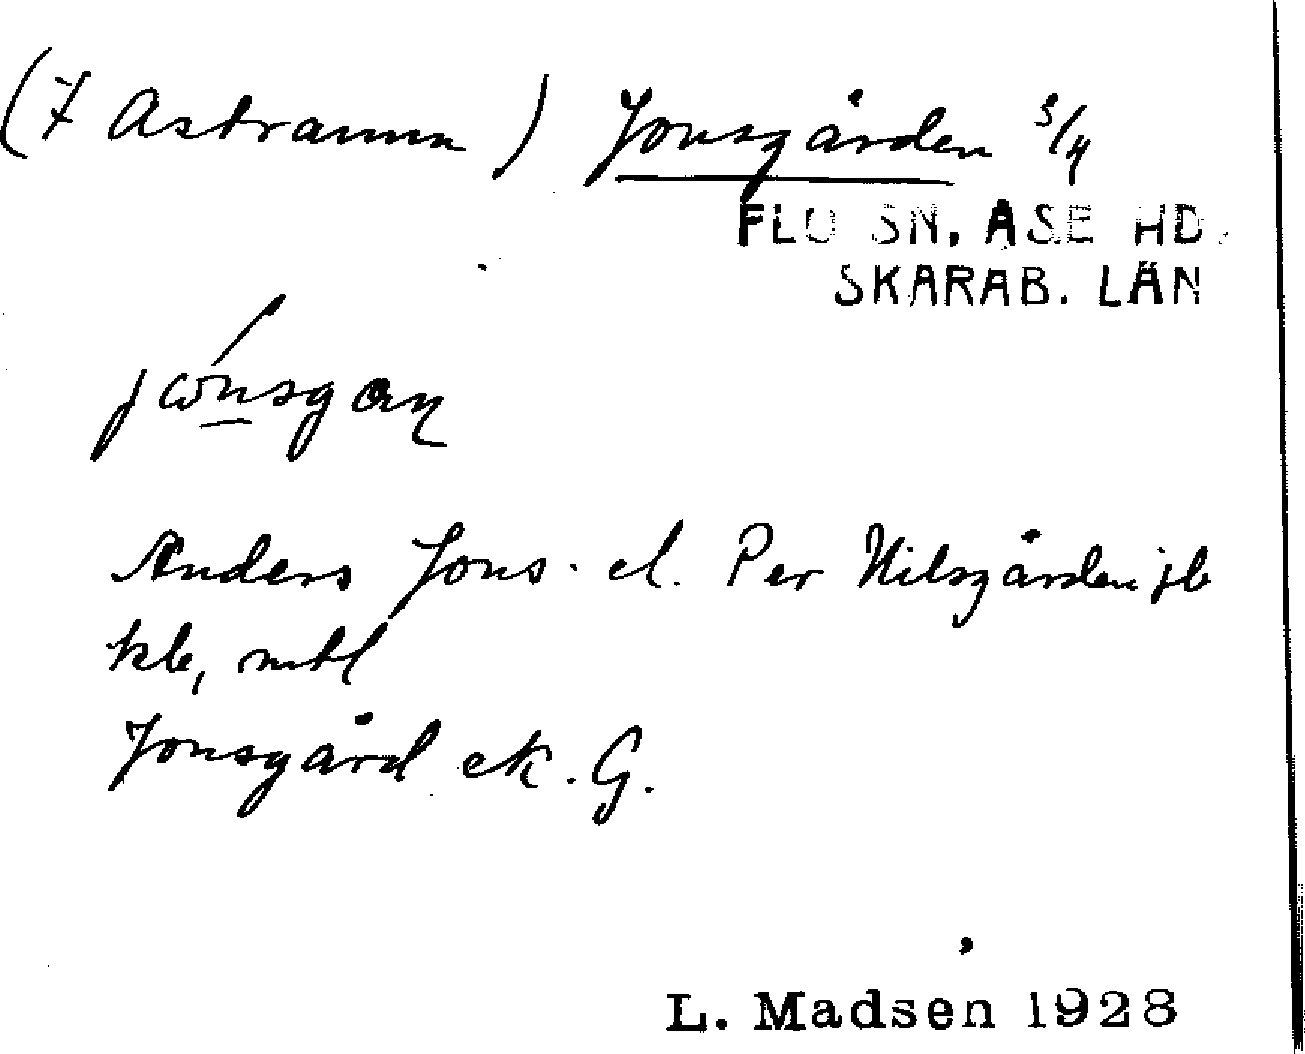 (7 Astramm) Jonsgården 3/4
FLO SN, ASE HD.
SKARAB. LÄN
Anders Jons- el. Per Nilsgården jb
kb, mtl
Jonsgård ek. G.
L. Madsen 1928